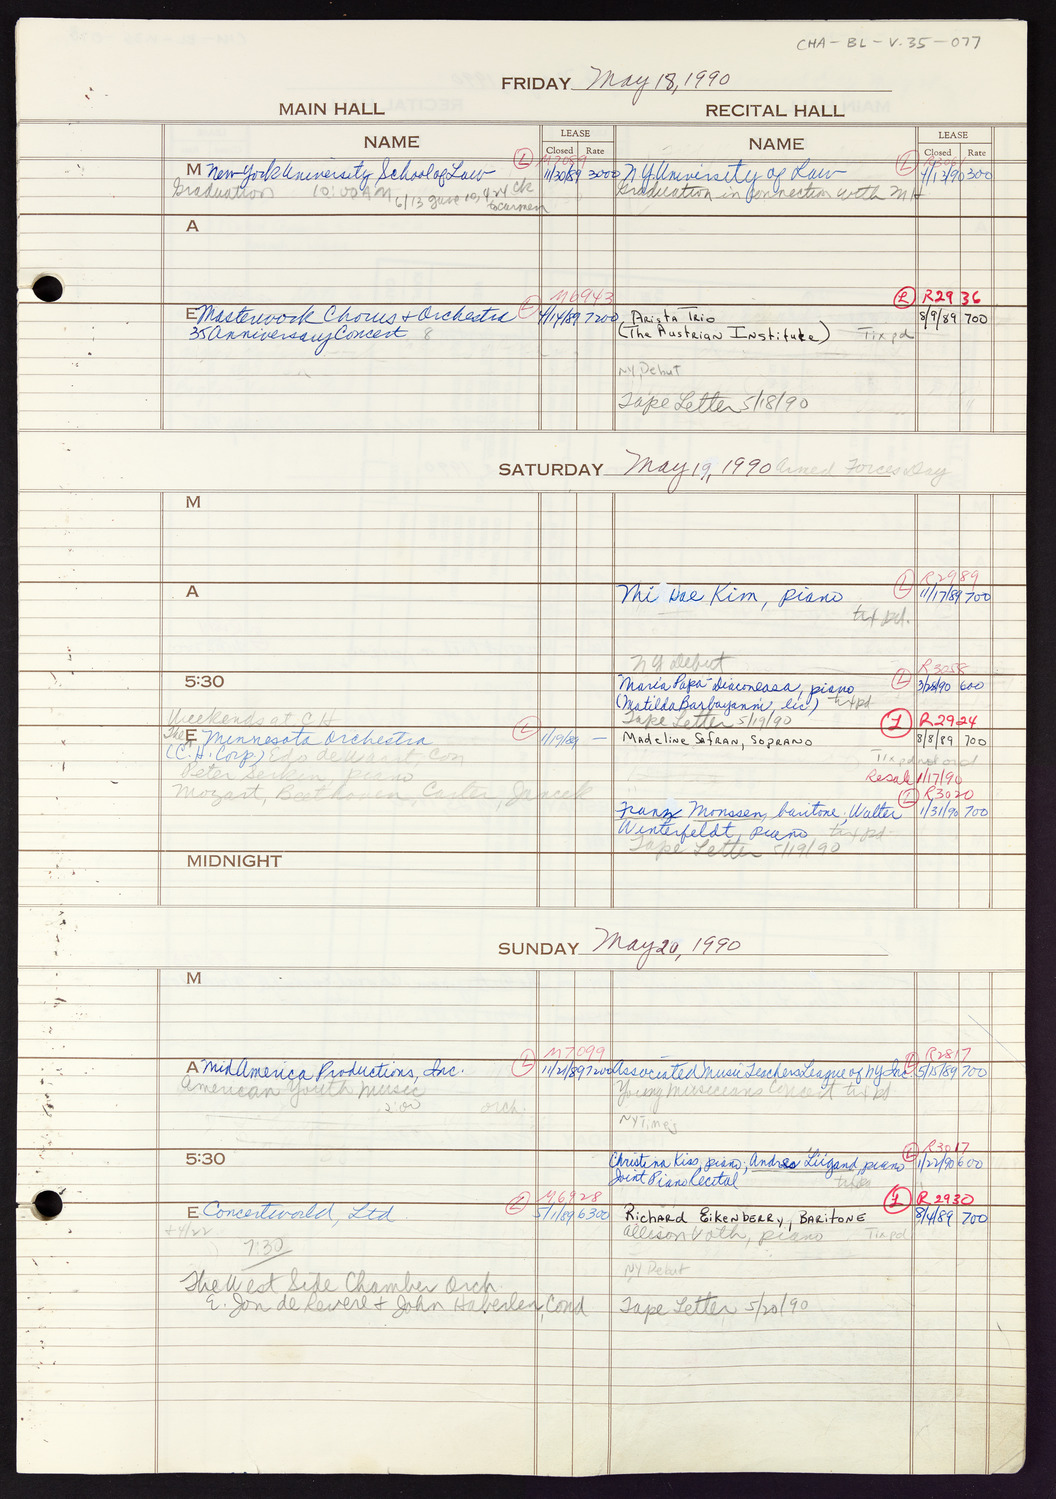 CHA-BL-V.35-077
FRIDAY May 18, 1990
MAIN HALL RECITAL HALL
NAME LEASE Closed Rate NAME LEASE Closed Rate
M7089
M New York University School of Law L 11/30/89 3000
Graduation 10:00 AM 6/13 gave
to Carmen
R3061
N.Y. University of Law L 4/13/90 300
Graduation in connection with MH
A
M6943
E Masterwork Chorus + Orchestra L 4/14/89 7200
35 Anniversary Concert 8
L R2936
Arista Trio 8/9/89 700
(The Austrian Institute) Tix pd
NY Debut
Tape Letter 5/18/90
SATURDAY May 19, 1990 Armed Forces Day
M
A
L R2989
Mi Hae Kim, piano 11/17/89 700
tix pd.
NY Debut
5:30
R3058
Maria Papa-Diaconeasa, piano L 3/28/90 600
(Matilda Barbayanni, lic) tix pd
Tape Letter 5/19/90
Weekends at CH
The
E Minnesota Orchestra L 1/19/89 —
(C.H. Corp) Edo de Waart, Con
Peter Serkin, piano
Mozart, Beethoven, Carter, Jancek
L R2924
Madeline Safran, Soprano 8/8/89 700
Tix pd
Resale 1/17/90
L R3020
Franz Monssen, baritone; Walter 1/31/90 700
Winterfeldt, piano tix pd
Tape Letter 5/19/90
MIDNIGHT
SUNDAY May 20, 1990
M
M7099
A MidAmerica Productions, Inc. L 11/21/89 7200
American Youth Music
2:00 orch.
R2817
Associated Music Teachers League of NY Inc L 5/15/89 700
Young Musicians Concert tix pd
NY Times
5:30
R3017
Christina Kiss, piano; Andres Liigand, piano L 1/22/90 600
Joint Piano Recital
M6928
E Concertworld, Ltd L 5/1/89 6300
7:30
The West Side Chamber Orch
E. Jon de Revere + John Haberlen, Cond
L R2930
Richard Eikenberry, Baritone 8/4/89 700
Allison Voth, piano Tix pd
NY Debut
Tape Letter 5/20/90